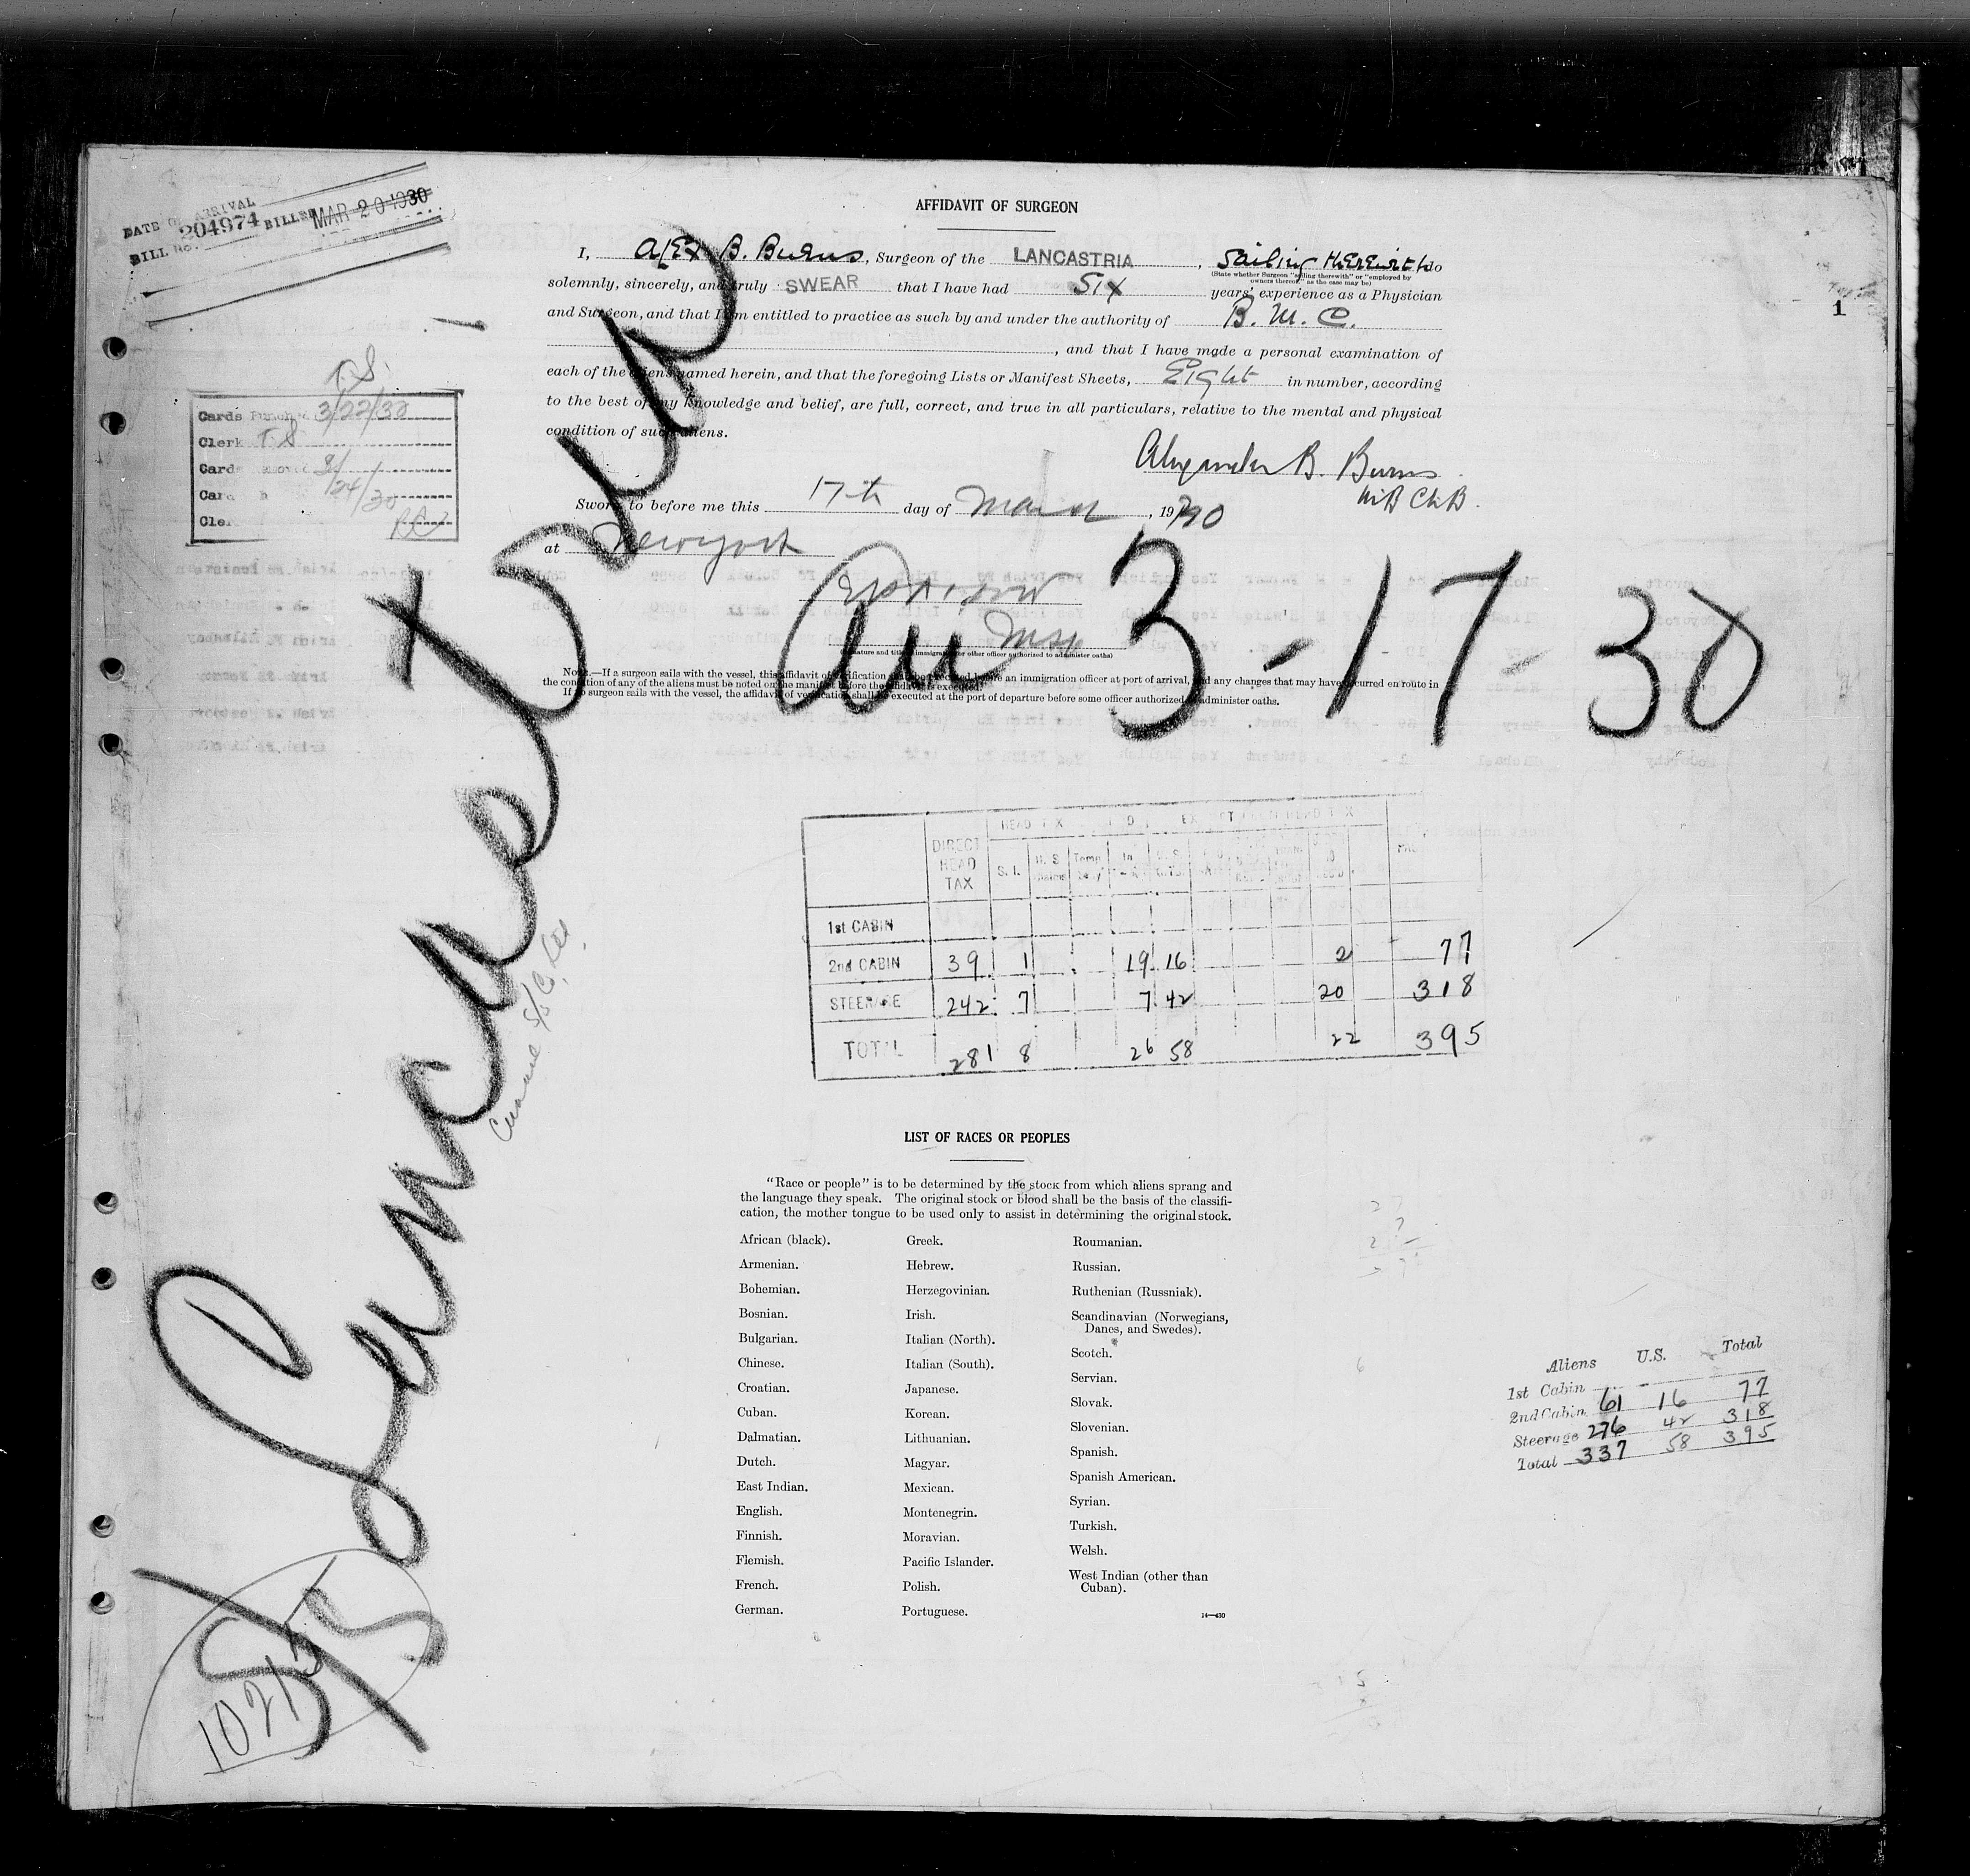 DATE OF ARRIVAL
BILL No. 204974 BILLED MAR 20 1930
1
AFFIDAVIT OF SURGEON
I, Alex B. Burns, Surgeon of the LANCASTRIA, Sailing Therewith do
(State whether Surgeon "sailing therewith" or "employed by
owners thereof," as the case may be)
solemnly, sincerely, and truly SWEAR that I have had Six years' experience as a Physician
and Surgeon, and that I am entitled to practice as such by and under the authority of B. M. C.
, and that I have made a personal examination of
each of the aliens named herein, and that the foregoing Lists or Manifest Sheets, Eight in number, according
to the best of my knowledge and belief, are full, correct, and true in all particulars, relative to the mental and physical
condition of such aliens.
Alexander B. Burns
M.B Ch.B.
Sworn to before me this 17th day of March, 1930
at New York
Insp
(Signature and title of immigration or other officer authorized to administer oaths)
Note.—If a surgeon sails with the vessel, this affidavit of verification shall be executed before an immigration officer at port of arrival, and any changes that may have occurred en route in
the condition of any of the aliens must be noted on the manifest before the affidavit is executed.
If no surgeon sails with the vessel, the affidavit of verification shall be executed at the port of departure before some officer authorized to administer oaths.
T.S.
Cards Punched 3/22/30
Clerk T.S
Cards 3/24/30
Clerk
SS Lancastria
Arr 3-17-30
Cunard S/S Co. Ltd.
10215
HEAD TAX EXEMPT FROM HEAD TAX
DIRECT HEAD TAX S. I. U. S.
1st CABIN
2nd CABIN 39 1 19 16 2 77
STEERAGE 242 7 7 42 20 318
TOTAL 281 8 26 58 22 395
LIST OF RACES OR PEOPLES
"Race or people" is to be determined by the stock from which aliens sprang and
the language they speak. The original stock or blood shall be the basis of the classifi-
cation, the mother tongue to be used only to assist in determining the original stock.
African (black).
Armenian.
Bohemian.
Bosnian.
Bulgarian.
Chinese.
Croatian.
Cuban.
Dalmatian.
Dutch.
East Indian.
English.
Finnish.
Flemish.
French.
German.
Greek.
Hebrew.
Herzegovinian.
Irish.
Italian (North).
Italian (South).
Japanese.
Korean.
Lithuanian.
Magyar.
Mexican.
Montenegrin.
Moravian.
Pacific Islander.
Polish.
Portuguese.
Roumanian.
Russian.
Ruthenian (Russniak).
Scandinavian (Norwegians,
Danes, and Swedes).
Scotch.
Servian.
Slovak.
Slovenian.
Spanish.
Spanish American.
Syrian.
Turkish.
Welsh.
West Indian (other than
Cuban).
14—430
Aliens U.S. Total
1st Cabin
2nd Cabin 61 16 77
Steerage 276 42 318
Total 337 58 395